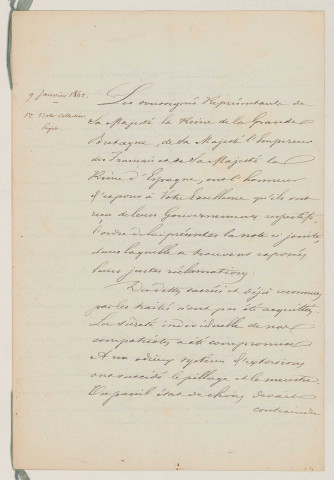 9 Janvier 1862.
Note Collective
Les soussignés Représentants de
Sa Majesté la Reine de la Grande
Bretagne, de Sa Majesté l'Empereur
des Français et de Sa Majesté la
Reine d'Espagne, ont l'honneur
d'exposer à Votre Excellence qu'ils ont
reçu de leurs Gouvernements respectifs
l'ordre de lui présenter la note ci jointe,
dans laquelle se trouvent exposées
leurs justes réclamations.
Des dettes sacrées et déjà reconnues
par les traités n'ont pas été acquittées.
La sûreté individuelle de nos
compatriotes a été compromise.
Aux odieux systèmes d'extorsions
ont succédé le pillage et le meurtre.
Un pareil état de choses devait
contraindre